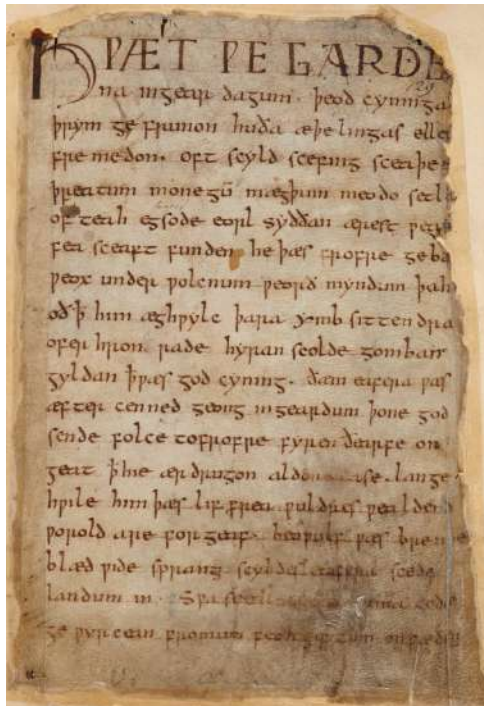 HǷÆT ǷE GARDE
na ingear dagum. þeod cyninga
þrym ge frunon huða æþelingas elle
fre medon. oft scyld scefing sceaþe
þreatum monegū mægþum meodo setla
of teah egsode eorl syððan ærest ƿear
fea sceaft funden he þæs frofre geba
ƿeox under ƿolcnum ƿeorð myndum þah
oð ꝥ him æghƿylc þara ymb sittendra
ofer hron rade hyran scolde gomban
gyldan ꝥ ƿæs god cyning. ðam eafera ƿæs
æfter cenned geong ingeardum þone god
sende folce tofrofre fyren ðearfe on
geat ꝥ hie ær drugon aldor ase. lange
hƿile him þæs lif frea ƿuldres ƿealdend
ƿorold are for geaf. beoƿulf ƿæs breme
blæd ƿide sprang scyldes eafera scede
landum in. Sƿa sceal
ge ƿyrcean fromum feoh giftum on fæder
129